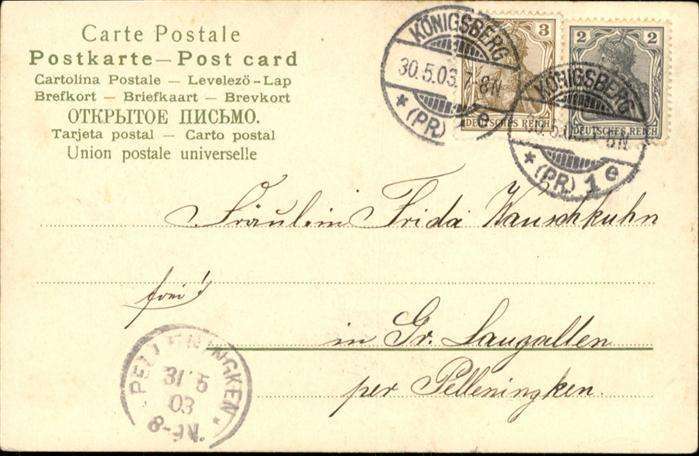 Carte Postale
Postkarte — Post card
Cartolina Postale — Levelezö-Lap
Brefkort — Briefkaart — Brevkort
ОТКРЫТОЕ ПИСЬМО.
Tarjeta postal — Carto postal
Union postale universelle
3
DEUTSCHES REICH
2
DEUTSCHES REICH
KÖNIGSBERG
30.5.03. 7-8N
* (PR.) e
KÖNIGSBERG
* (PR.) 1 e
Fräulein Frida Wauschkuhn
frei!
in Gr. Laugallen
per Pelleningken.
PELLENINGKEN.
31 5
03